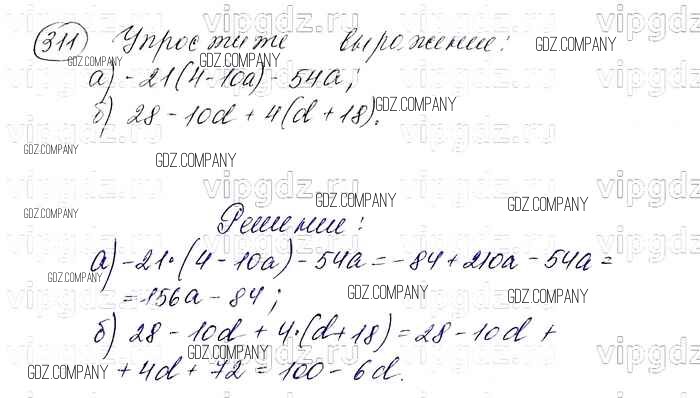 311 Упростите выражение:
а) -21(4-10а) - 54а;
б) 28 - 10d + 4(d + 18).
Решение:
а) -21·(4 - 10а) - 54а = -84 + 210а - 54а =
= 156а - 84;
б) 28 - 10d + 4·(d + 18) = 28 - 10d +
+ 4d + 72 = 100 - 6d.
GDZ.COMPANY
vipgdz.ru